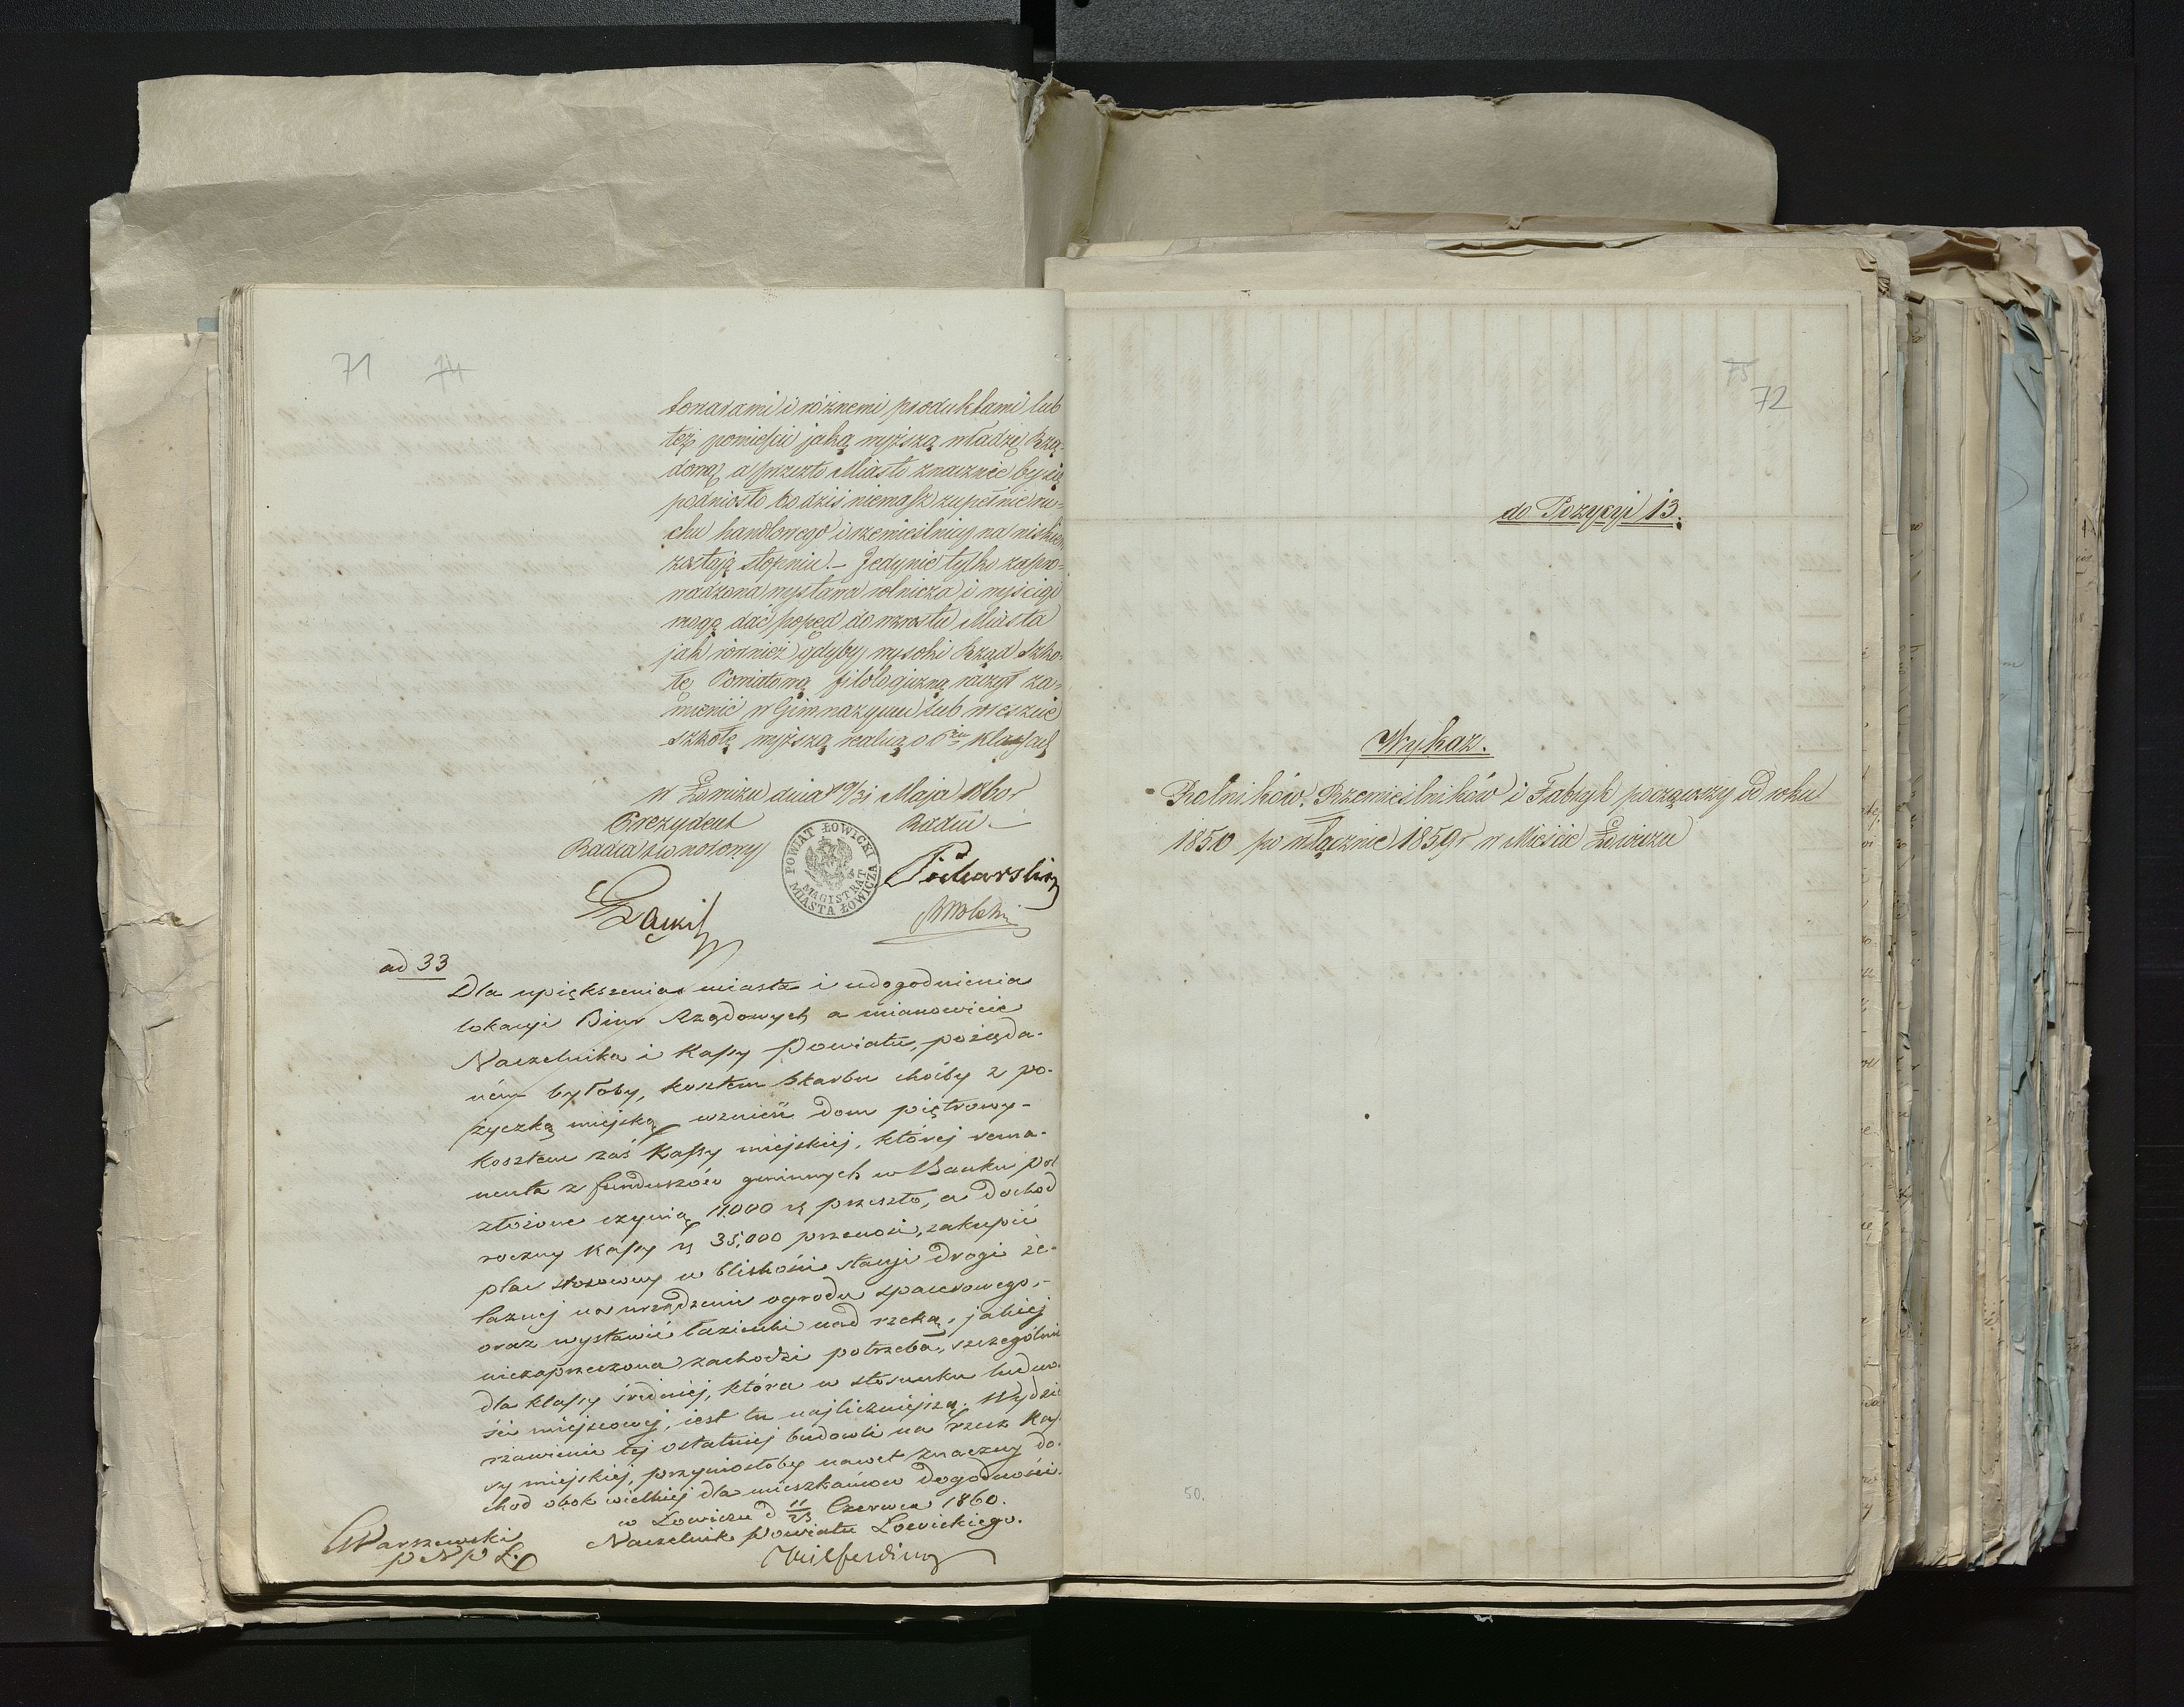 71 74
towarami i różnemi produktami lub
też pomieścić jaką wyższą władzę Rzą-
dową, a przezto Miasto znacznie by się
podniosło bo dziś niemasz zupełnie ru-
chu handlowego i rzemieślnicy na niskim
zostają stopniu. – Jedynie tylko zapro-
wadzona wystawa rolnicza i wyścigi
mogą dać popęd do wzrostu Miasta
jak również gdyby wysoki Rząd Szko-
łę Powiatową filologiczną raczył za-
mienić w Gimnazyum lub wreszcie
szkołę wyższą realną o 6ciu klassach
w Łowiczu dnia 19/31 Maja 1860 r
Prezydent Radni
Radca honorowy
POWIAT ŁOWICKI
MAGISTRAT
MIASTA ŁOWICZA
ad 33
Dla upiększenia miasta i udogodnienia
lokacyi Biur Rządowych a mianowicie
Naczelnika i Kassy Powiatu, pożąda-
ném byłoby, kosztem Skarbu choćby z po-
życzką miejską wznieść dom piętrowy –
kosztem zaś Kassy miejskiej, której rema-
nenta z funduszów gminnych w Banku pol
złożone czynią 11.000 rs przeszło, a dochod
roczny Kassy rs 35,000 przenosi, zakupić
plac stosowny w bliskości stacyi drogi że-
laznej na urządzenie ogrodu spacerowego,
oraz wystawić łazienki nad rzeką, jakiej
niezaprzeczona zachodzi potrzeba, szczególnie
dla klassy średniej, która w stosunku ludno-
ści miejscowej, jest tu najliczniejszą. Wydzie
rzawienie tej ostatniej budowli na rzecz Kas
sy miejskiej, przyniosłoby nawet znaczny do-
chod obok wielkiej dla mieszkańców dogodności.
w Łowiczu d 11/23 Czerwca 1860.
Naczelnik Powiatu Łowickiego.
Warszewski
p N p Ł
Hilferding
75
72
do Pozycyi 13.
Wykaz.
Rolników, Rzemieślników i Fabryk począwszy od roku
1850 po włącznie 1859 r w Mieście Łowiczu
50.